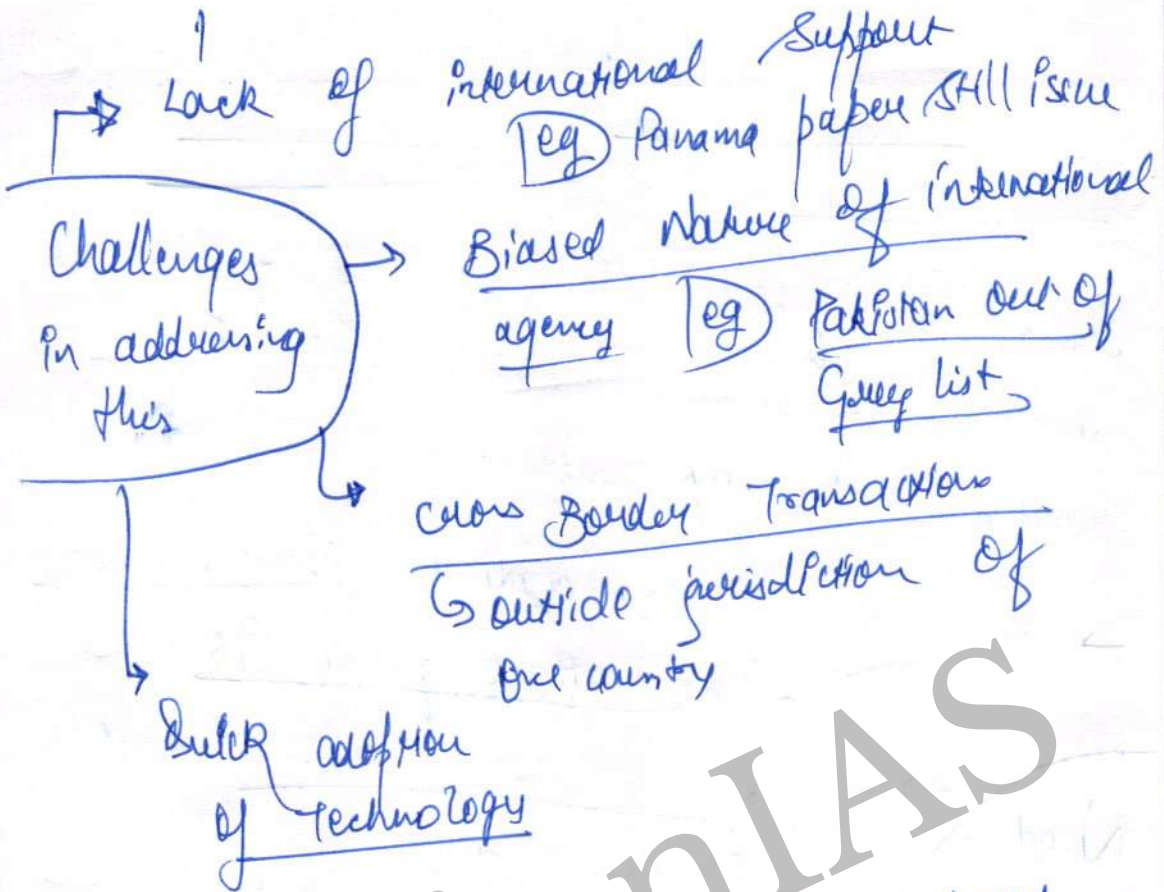 Lack of international Support
eg Panama paper still issue
Challenges
in addressing
this
Biased Nature of international
agency eg Pakistan out of
Grey list
Cross Border Transactions
outside jurisdiction of
one country
Quick adoption
of Technology
nIAS